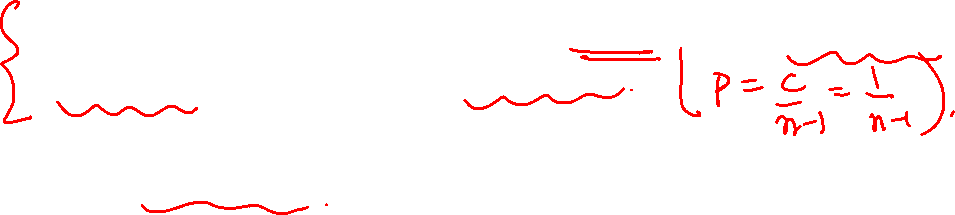 (P = c/n-1 = 1/n-1).